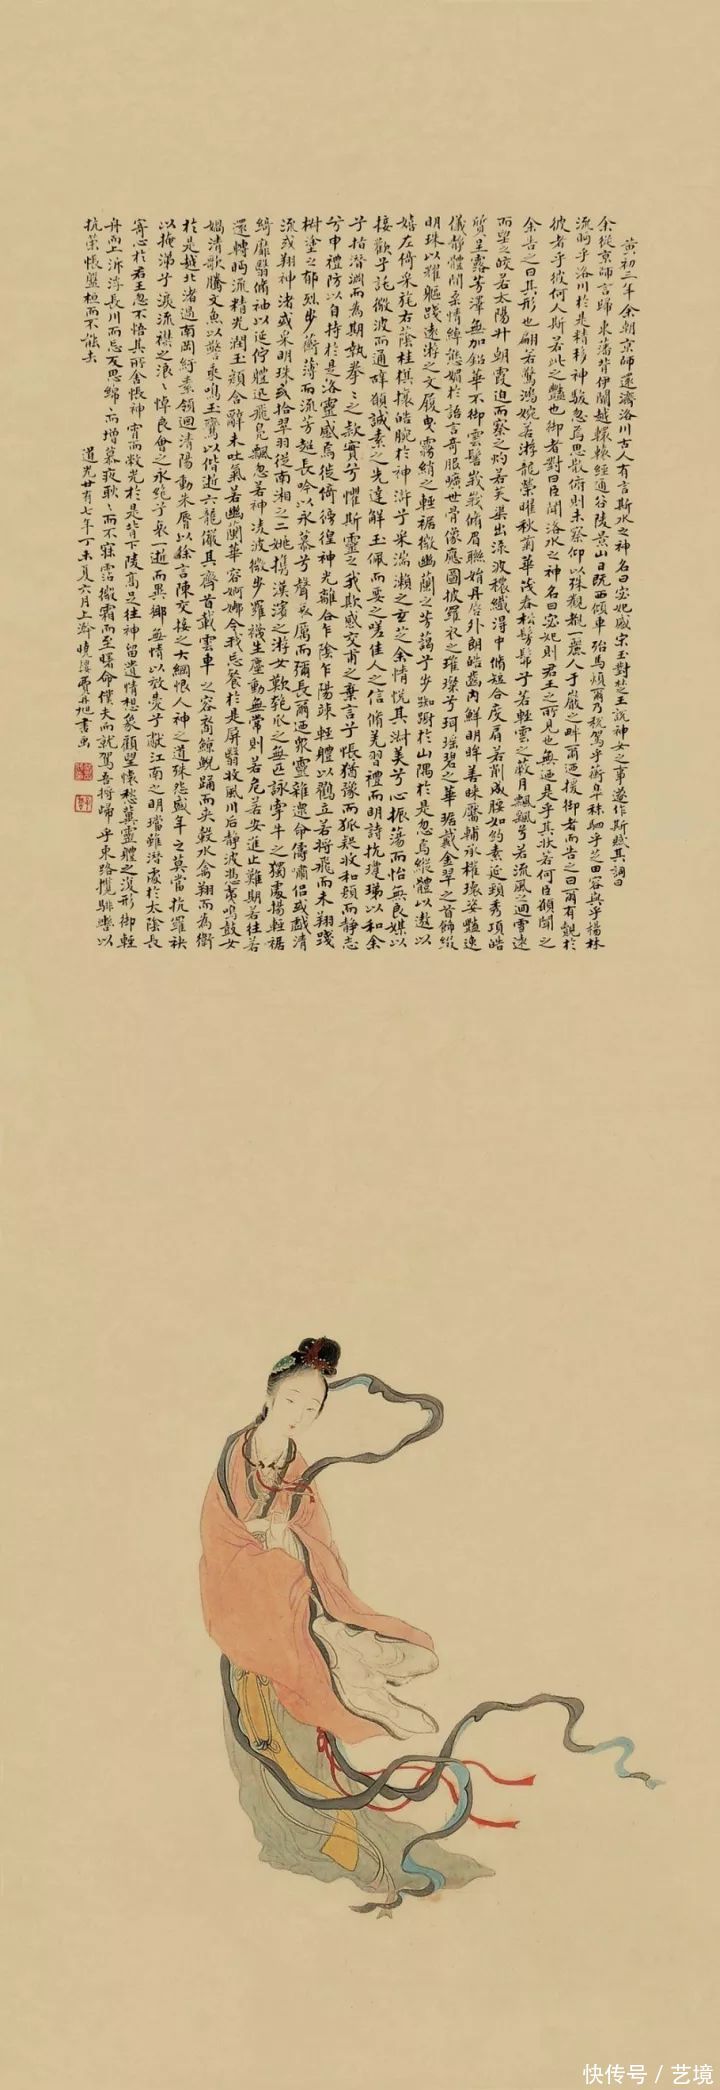 黃初三年余朝京師還濟洛川古人有言斯水之神名曰宓妃感宋玉對楚王說神女之事遂作斯賦其詞曰
余從京師言歸東藩背伊闕越轘轅經通谷陵景山日既西傾車殆馬煩爾乃稅駕乎蘅皋秣駟乎芝田容與乎楊林
流眄乎洛川於是精移神駭忽焉思散俯則未察仰以殊觀覩一麗人于巖之畔爾迺援御者而告之曰爾有覿於
彼者乎彼何人斯若此之豔也御者對曰臣聞洛水之神名曰宓妃則君王之所見也無迺是乎其狀若何臣願聞之
余告之曰其形也翩若驚鴻婉若游龍榮曜秋菊華茂春松髣髴兮若輕雲之蔽月飄飄兮若流風之迴雪遠
而望之皎若太陽升朝霞迫而察之灼若芙蕖出淥波穠纖得中脩短合度肩若削成腰如約素延頸秀項皓
質呈露芳澤無加鉛華不御雲髻峩峩脩眉聯娟丹脣外朗皓齒內鮮明眸善睞靨輔承權瓌姿豔逸
儀靜體閒柔情綽態媚於語言奇服曠世骨像應圖披羅衣之璀璨兮珥瑶碧之華琚戴金翠之首飾綴
明珠以耀軀踐遠游之文履曳霧綃之輕裾微幽蘭之芳藹兮步踟躕於山隅於是忽焉縱體以遨以
嬉左倚采旄右蔭桂旗攘皓腕於神滸兮采湍瀨之玄芝余情悅其淑美兮心振蕩而怡無良媒以
接歡兮託微波而通辭願誠素之先達解玉佩而要之嗟佳人之信脩羌習禮而明詩抗瓊珶以和余
兮指潛淵而為期執拳〻之款實兮懼斯靈之我欺感交甫之棄言兮悵猶豫而狐疑收和顏而靜志
兮申禮防以自持於是洛靈感焉徙倚徬徨神光離合乍陰乍陽竦輕體以鶴立若將飛而未翔踐
椒塗之郁烈步蘅薄而流芳超長吟以永慕兮聲哀厲而彌長爾迺眾靈雜遝命儔嘯侶或戲清
流或翔神渚或采明珠或拾翠羽從南湘之二姚攜漢濱之游女歎匏瓜之無匹詠牽牛之獨處揚輕裾
綺靡翳脩袖以延佇體迅飛鳧飄忽若神淩波微步羅襪生塵動無常則若危若安進止難期若往若
還轉眄流精光潤玉顏含辭未吐氣若幽蘭華容婀娜令我忘餐於是屏翳收風川后靜波馮夷鳴鼓女
媧清歌騰文魚以警乘鳴玉鸞以偕逝六龍儼其齊首載雲車之容裔鯨鯢踊而夾轂水禽翔而為衛
於是越北渚過南岡紆素領迴清陽動朱脣以徐言陳交接之大綱恨人神之道殊怨盛年之莫當抗羅袂
以掩涕兮淚流襟之浪〻悼良會之永絕兮哀一逝而異鄉無情以效愛兮獻江南之明璫雖潛處於太陰長
寄心於君王忽不悟其所舍悵神宵而蔽光於是背下陵高足往神留遺情想象顧望懷愁冀靈體之復形御輕
舟而上泝浮長川而忘反思綿〻而增慕夜耿〻而不寐霑微霜而至曙命僕夫而就駕吾將歸乎東路攬騑轡以
抗策悵盤桓而不能去
道光廿有七年丁未夏六月上澣曉樓費丹旭書畫
快传号 / 艺境